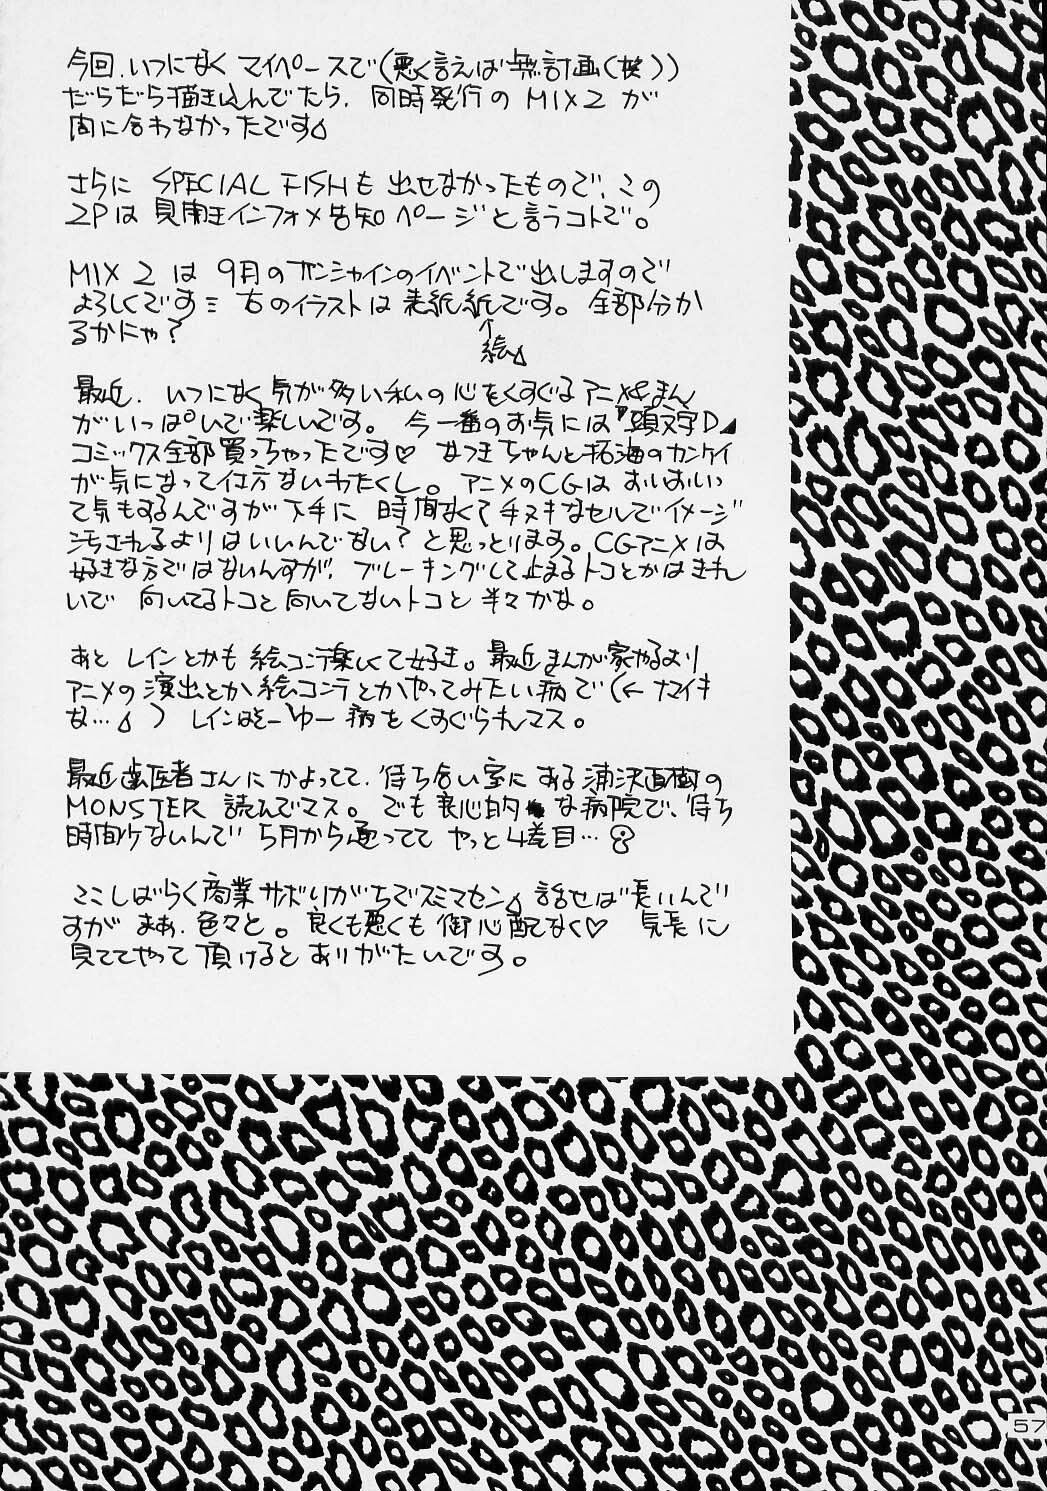 今回、いつになく マイペースで(悪く言えば 無計画(笑))
だらだら描き込んでたら、同時発行の MIX 2 が
間に合わなかったです
さらに SPECIAL FISHも 出せなかったもので、この
2Pは 見開きインフォメ告知ページと言うコトで。
MIX 2 は 9月のサンシャインのイベントで出しますので
よろしくです 右のイラストは 表紙紙です。全部分か
るかにゃ?
↑
絵
最近、いつになく 気が多い私の 心をくすぐる アニメ&まん
がいっぱいで楽しいです。今一番のお気には『頭文字D』
コミックス全部買っちゃったです♡ なつきちゃんと拓海のカンケイ
が気になって仕方ないわたくし。アニメのCGは おいおいっ
て気もするんですが 下手に 時間なくて手ヌキなセルでイメージ
汚されるよりはいいんでない? と思っとります。CGアニメは
好きな方ではないんすが、ブレーキングして止まるトコとかはきれ
いで 向いてるトコと向いてないトコと 半々かな。
あと レインとかも 絵コンテ楽しくて好き。最近まんが家やるより
アニメの 演出とか絵コンテとかやってみたい病で(←ナマイキ
な…) レインはそーゆー 病をくすぐられマス。
最近歯医者さんにかよってて、待ち合い室にある浦沢直樹の
MONSTER 読んでマス。でも 良心的 な病院で、待ち
時間少ないんで 5月から通ってて やっと4巻目…
ここしばらく商業サボりがちでスミマセン 話せば長いんで
すが まぁ、色々と。良くも悪くも 御心配なく♡ 気長に
見ててやって 頂けると ありがたいです。
57